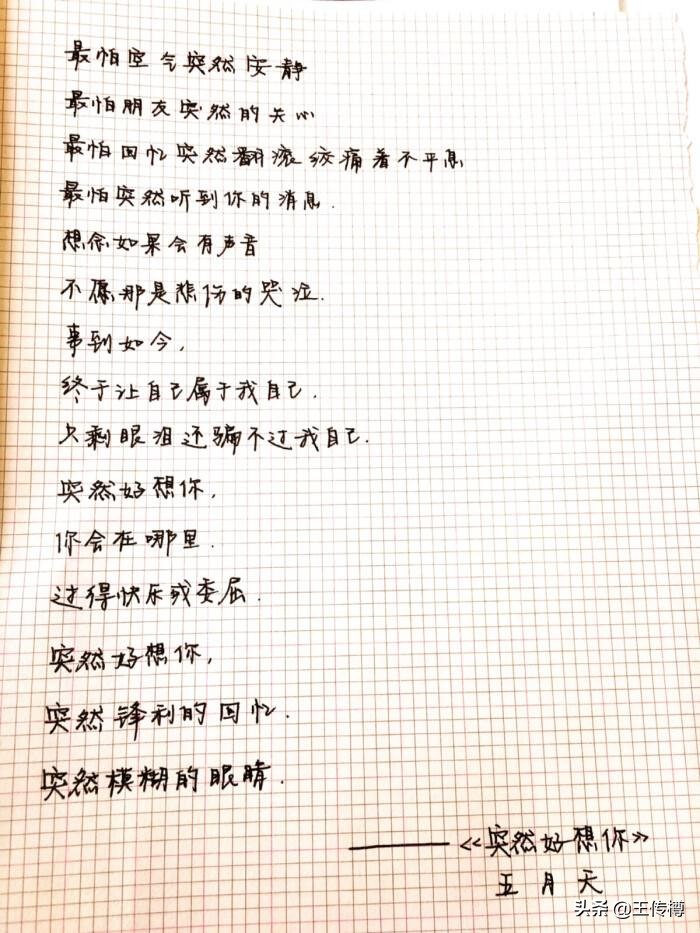 最怕空气突然安静
最怕朋友突然的关心
最怕回忆突然翻滚绞痛着不平息
最怕突然听到你的消息.
想念如果会有声音
不愿那是悲伤的哭泣.
事到如今,
终于让自己属于我自己.
只剩眼泪还骗不过我自己.
突然好想你,
你会在哪里.
过得快乐或委屈.
突然好想你,
突然锋利的回忆.
突然模糊的眼睛.
——《突然好想你》
五月天
头条 @王传樽